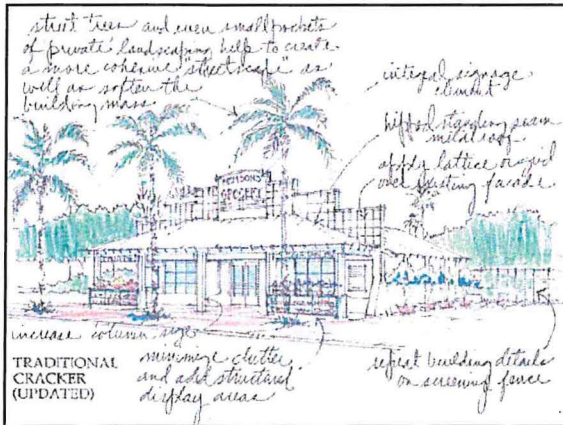 street trees and even small pockets
of private landscaping help to create
a more cohesive "streetscape" as
well as soften the
building mass
integral signage
element
hipped standing seam
metal roof
apply lattice or grid
over existing facade
GROCERY
increase column size
minimize clutter
and add structured
display areas
repeat building details
on screening fence
TRADITIONAL
CRACKER
(UPDATED)